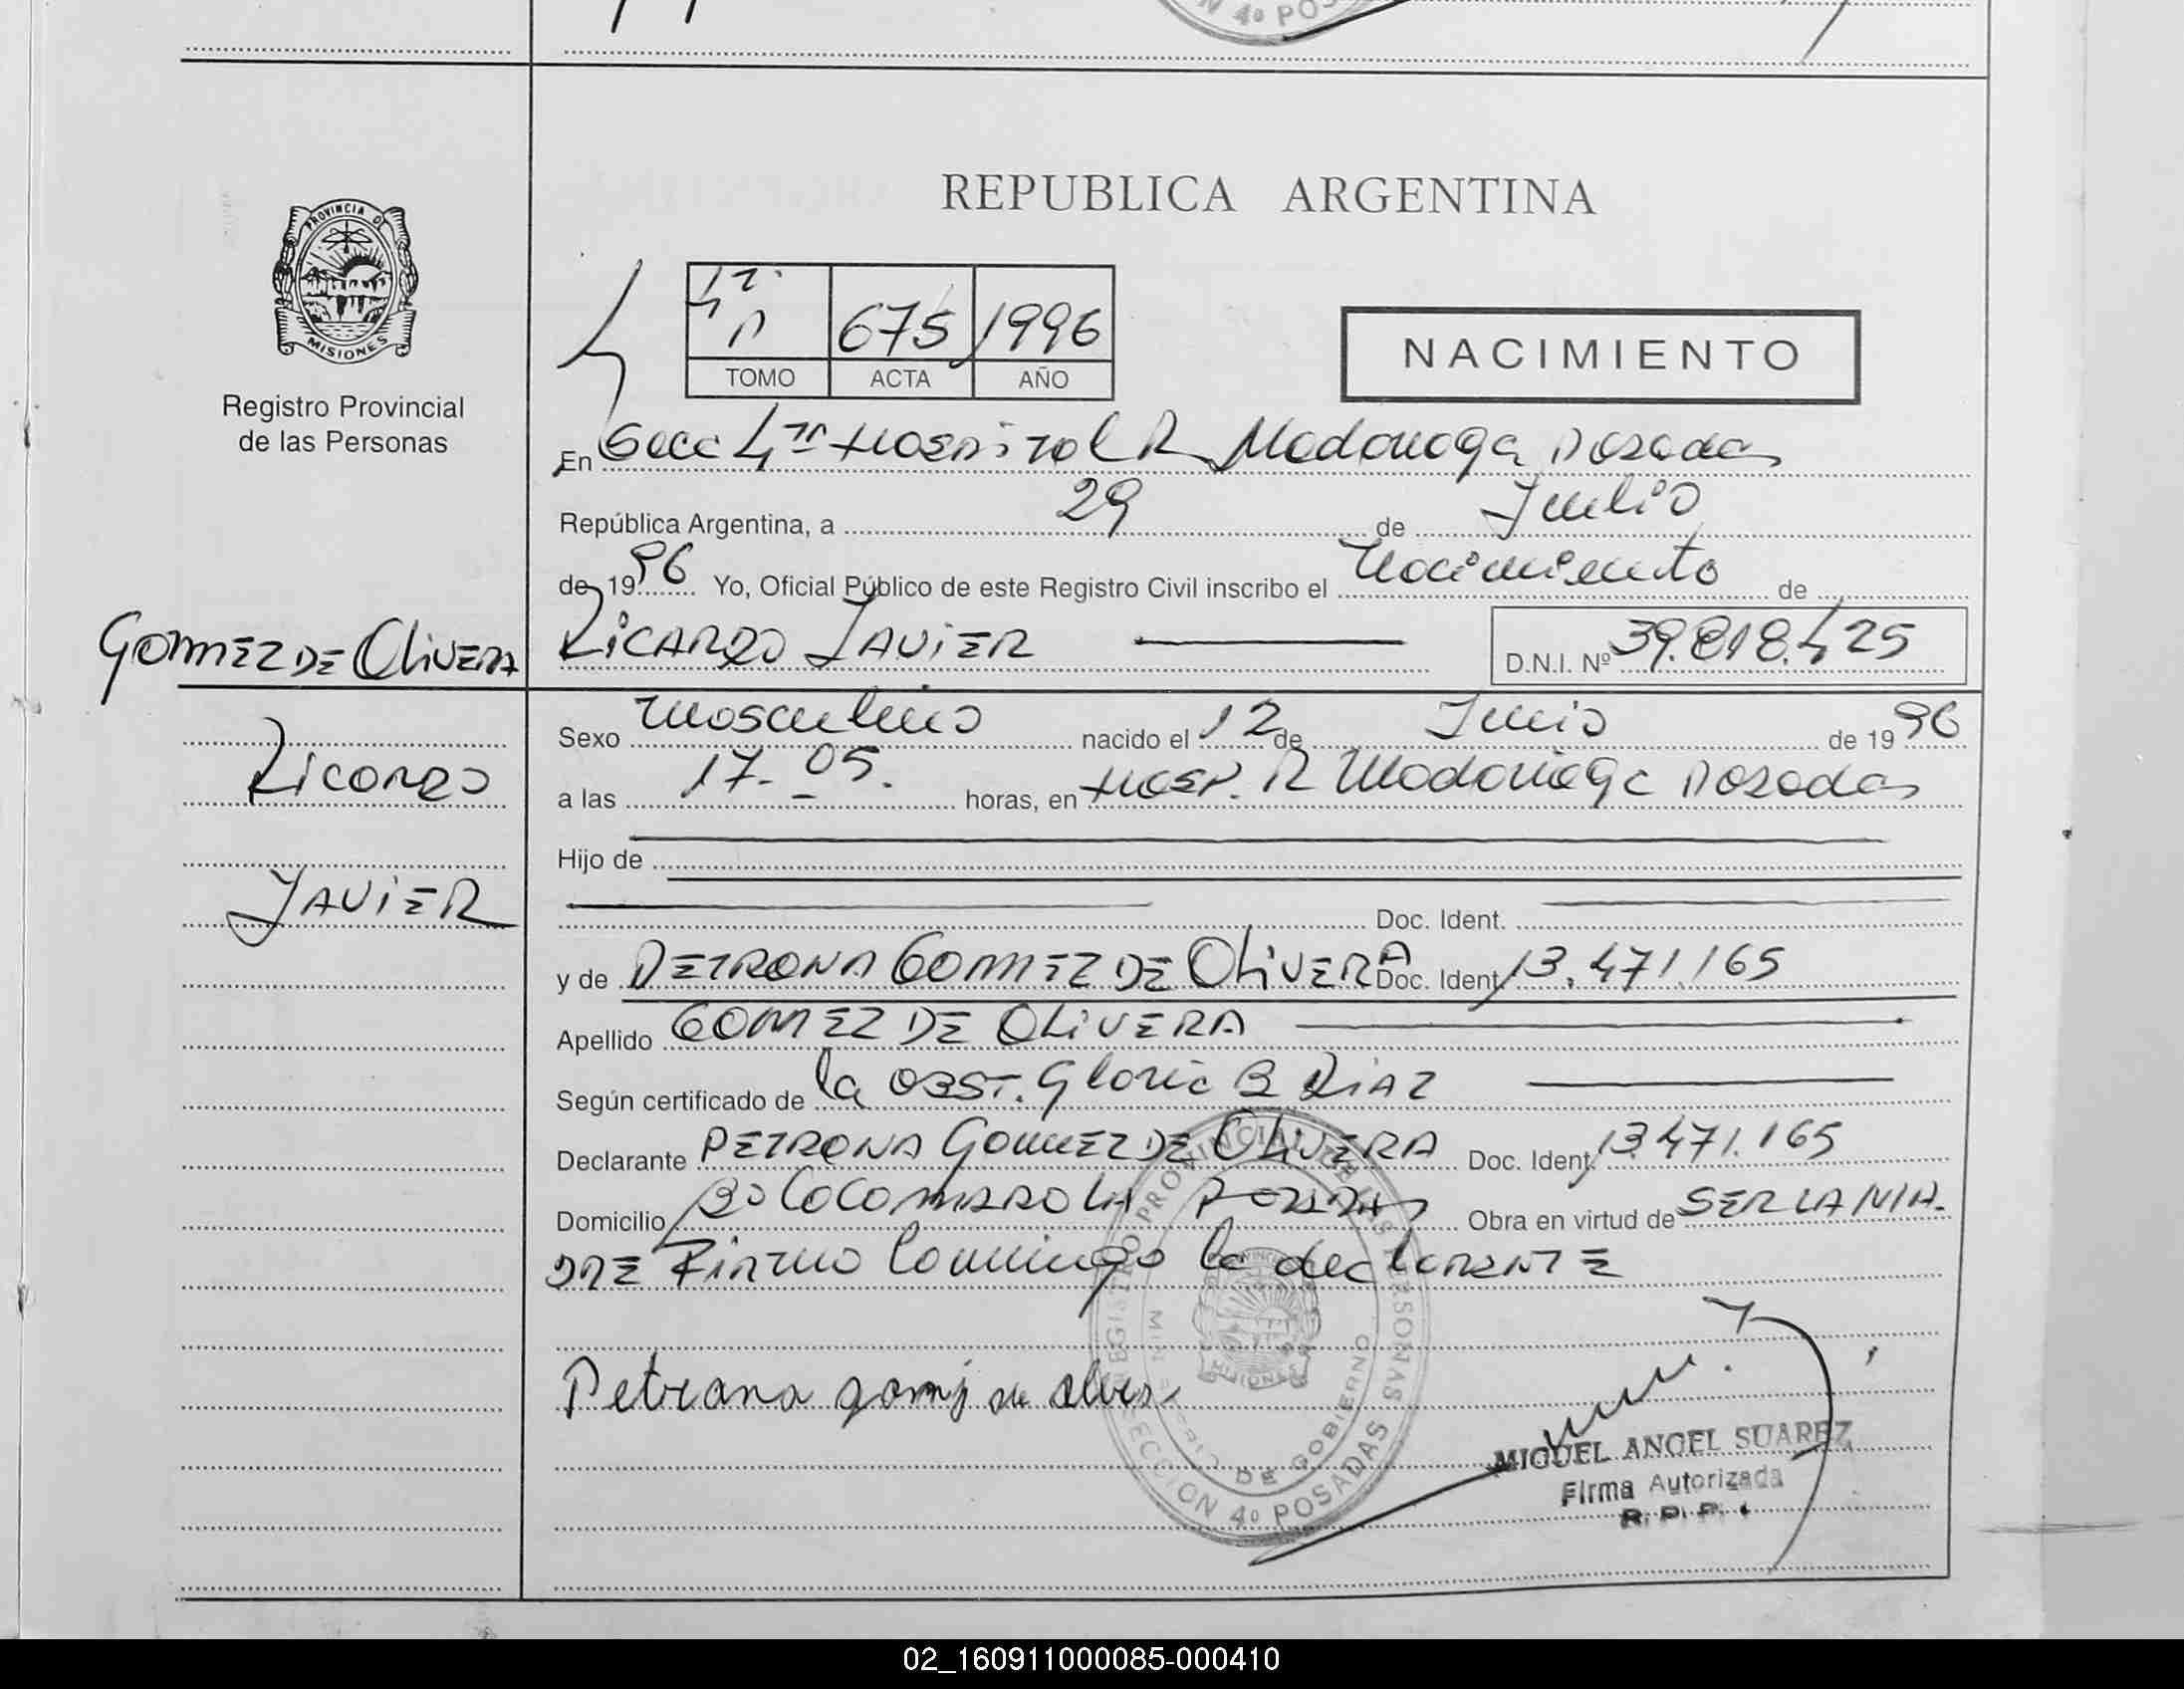 N 4º POS
REPUBLICA ARGENTINA
PROVINCIA DE
MISIONES
Registro Provincial
de las Personas
4º 675 1996
TOMO ACTA AÑO
NACIMIENTO
En Secc 4ta Hospital R Madariaga Posadas
República Argentina, a 29 de Julio
de 1996 Yo, Oficial Público de este Registro Civil inscribo el Nacimiento de
GOMEZ DE OLIVERA
RICARDO JAVIER
D.N.I. Nº 39.818.425
Ricardo
JAVIER
Sexo Masculino nacido el 12 de Junio de 1996
a las 17-05. horas, en HOSP. R Madariaga Posadas
Hijo de
Doc. Ident.
y de PETRONA GOMEZ DE OLIVERA Doc. Ident. 13.471.165
Apellido GOMEZ DE OLIVERA
Según certificado de la OBST. Gloria B DIAZ
Declarante PETRONA GOMEZ DE OLIVERA Doc. Ident. 13.471.165
Domicilio Bº COCOMAROLA Posadas Obra en virtud de SER LA MA-
DRE Firmo conmigo la declarante
REGISTRO PROVINCIAL DE LAS PERSONAS
MINISTERIO DE GOBIERNO
SECCION 4º POSADAS
Petrona
MIGUEL ANGEL SUAREZ
Firma Autorizada
R. P. P.
02_160911000085-000410